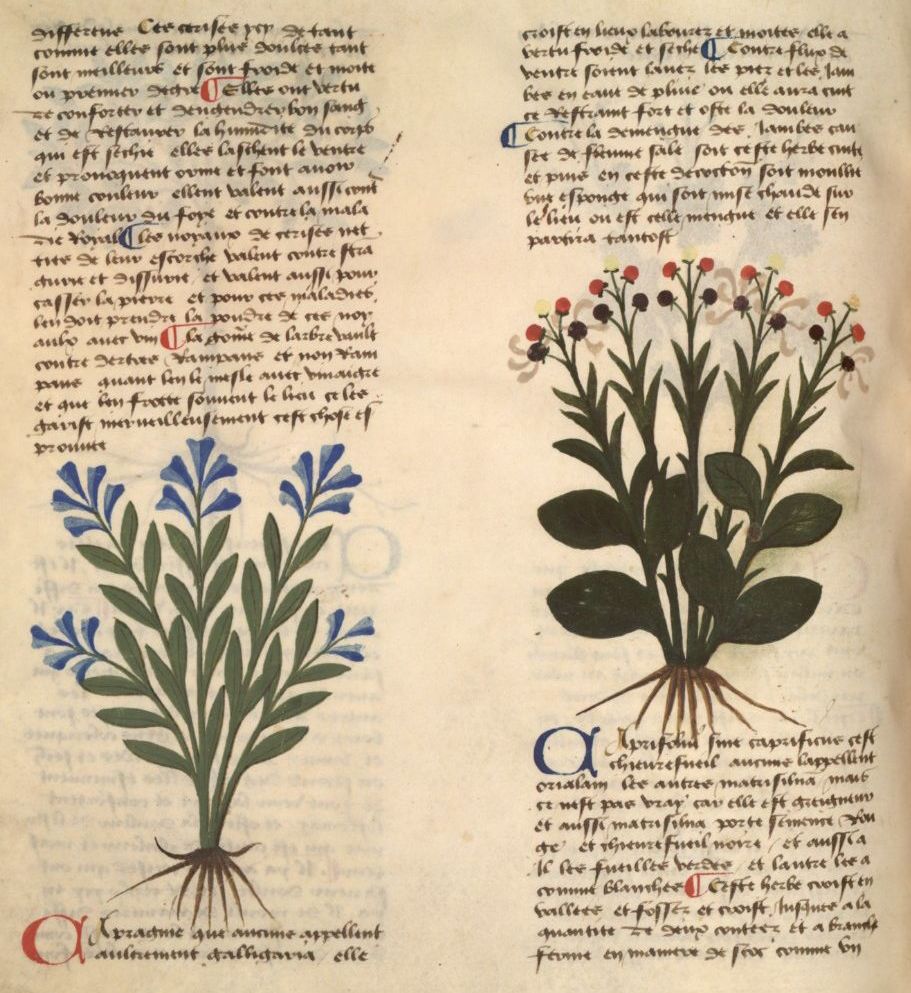 differens Ces cerises ycy de tant
comme elles sont plus doulces tant
sont meilleurs et sont froide et moite
ou premier degre ¶ Elles ont vertu
de conforter et dengendrer bon sang
et de Restaurer la humidite du corps
qui est sechie elles laschent le ventre
et prouoquent orine et font auoir
bonne couleur ellent valent aussi cont
la douleur du foye et contre la mala
die Royal ¶ les noyaux de cerises net
ties de leur escorche valent contre stra
gurie et dissurie et valent aussi pour
casser la pierre et pour ces maladies
len doit prendre la poudre de ces noy
aulx auec vin ¶ la gome de larbre vault
contre dertres Rampans et non Ram
pans quant len le mesle auec vinaigre
et que len frotte souuent le lieu ce les
garist merueilleusement cest chose es
prouuee
Capragine que aucuns appellent
aultrement galligaria elle
croist en lieux labourez et moites elle a
vertu froide et seche ¶ Contre flux de
ventre soient lauez les piez et les Jam
bes en eaue de pluie ou elle aura cuit
ce Restraint fort et oste la douleur
¶ Contre la demengue des Jambes cau
see de fleume sale soit ceste herbe cuite
et puis en ceste decoction soit moullie
vne esponge qui soit mise chaude sur
le lieu ou est celle mengue et elle sen
partira tantost
Caprifolii siue caprificus cest
chieurefueil aucuns lappellent
orialam les autres matrisilua mais
ce nest pas vray car elle est greigneur
et aussi matrisilua porte semence Rou
ge et chieurefueil noire et aussi a
Il les fueilles verdes et lautre les a
comme blanches ¶ Ceste herbe croist en
vallees et fossez et croist Jusques a la
quantite de deux coutees et a branche
ferme en maniere de comme vn